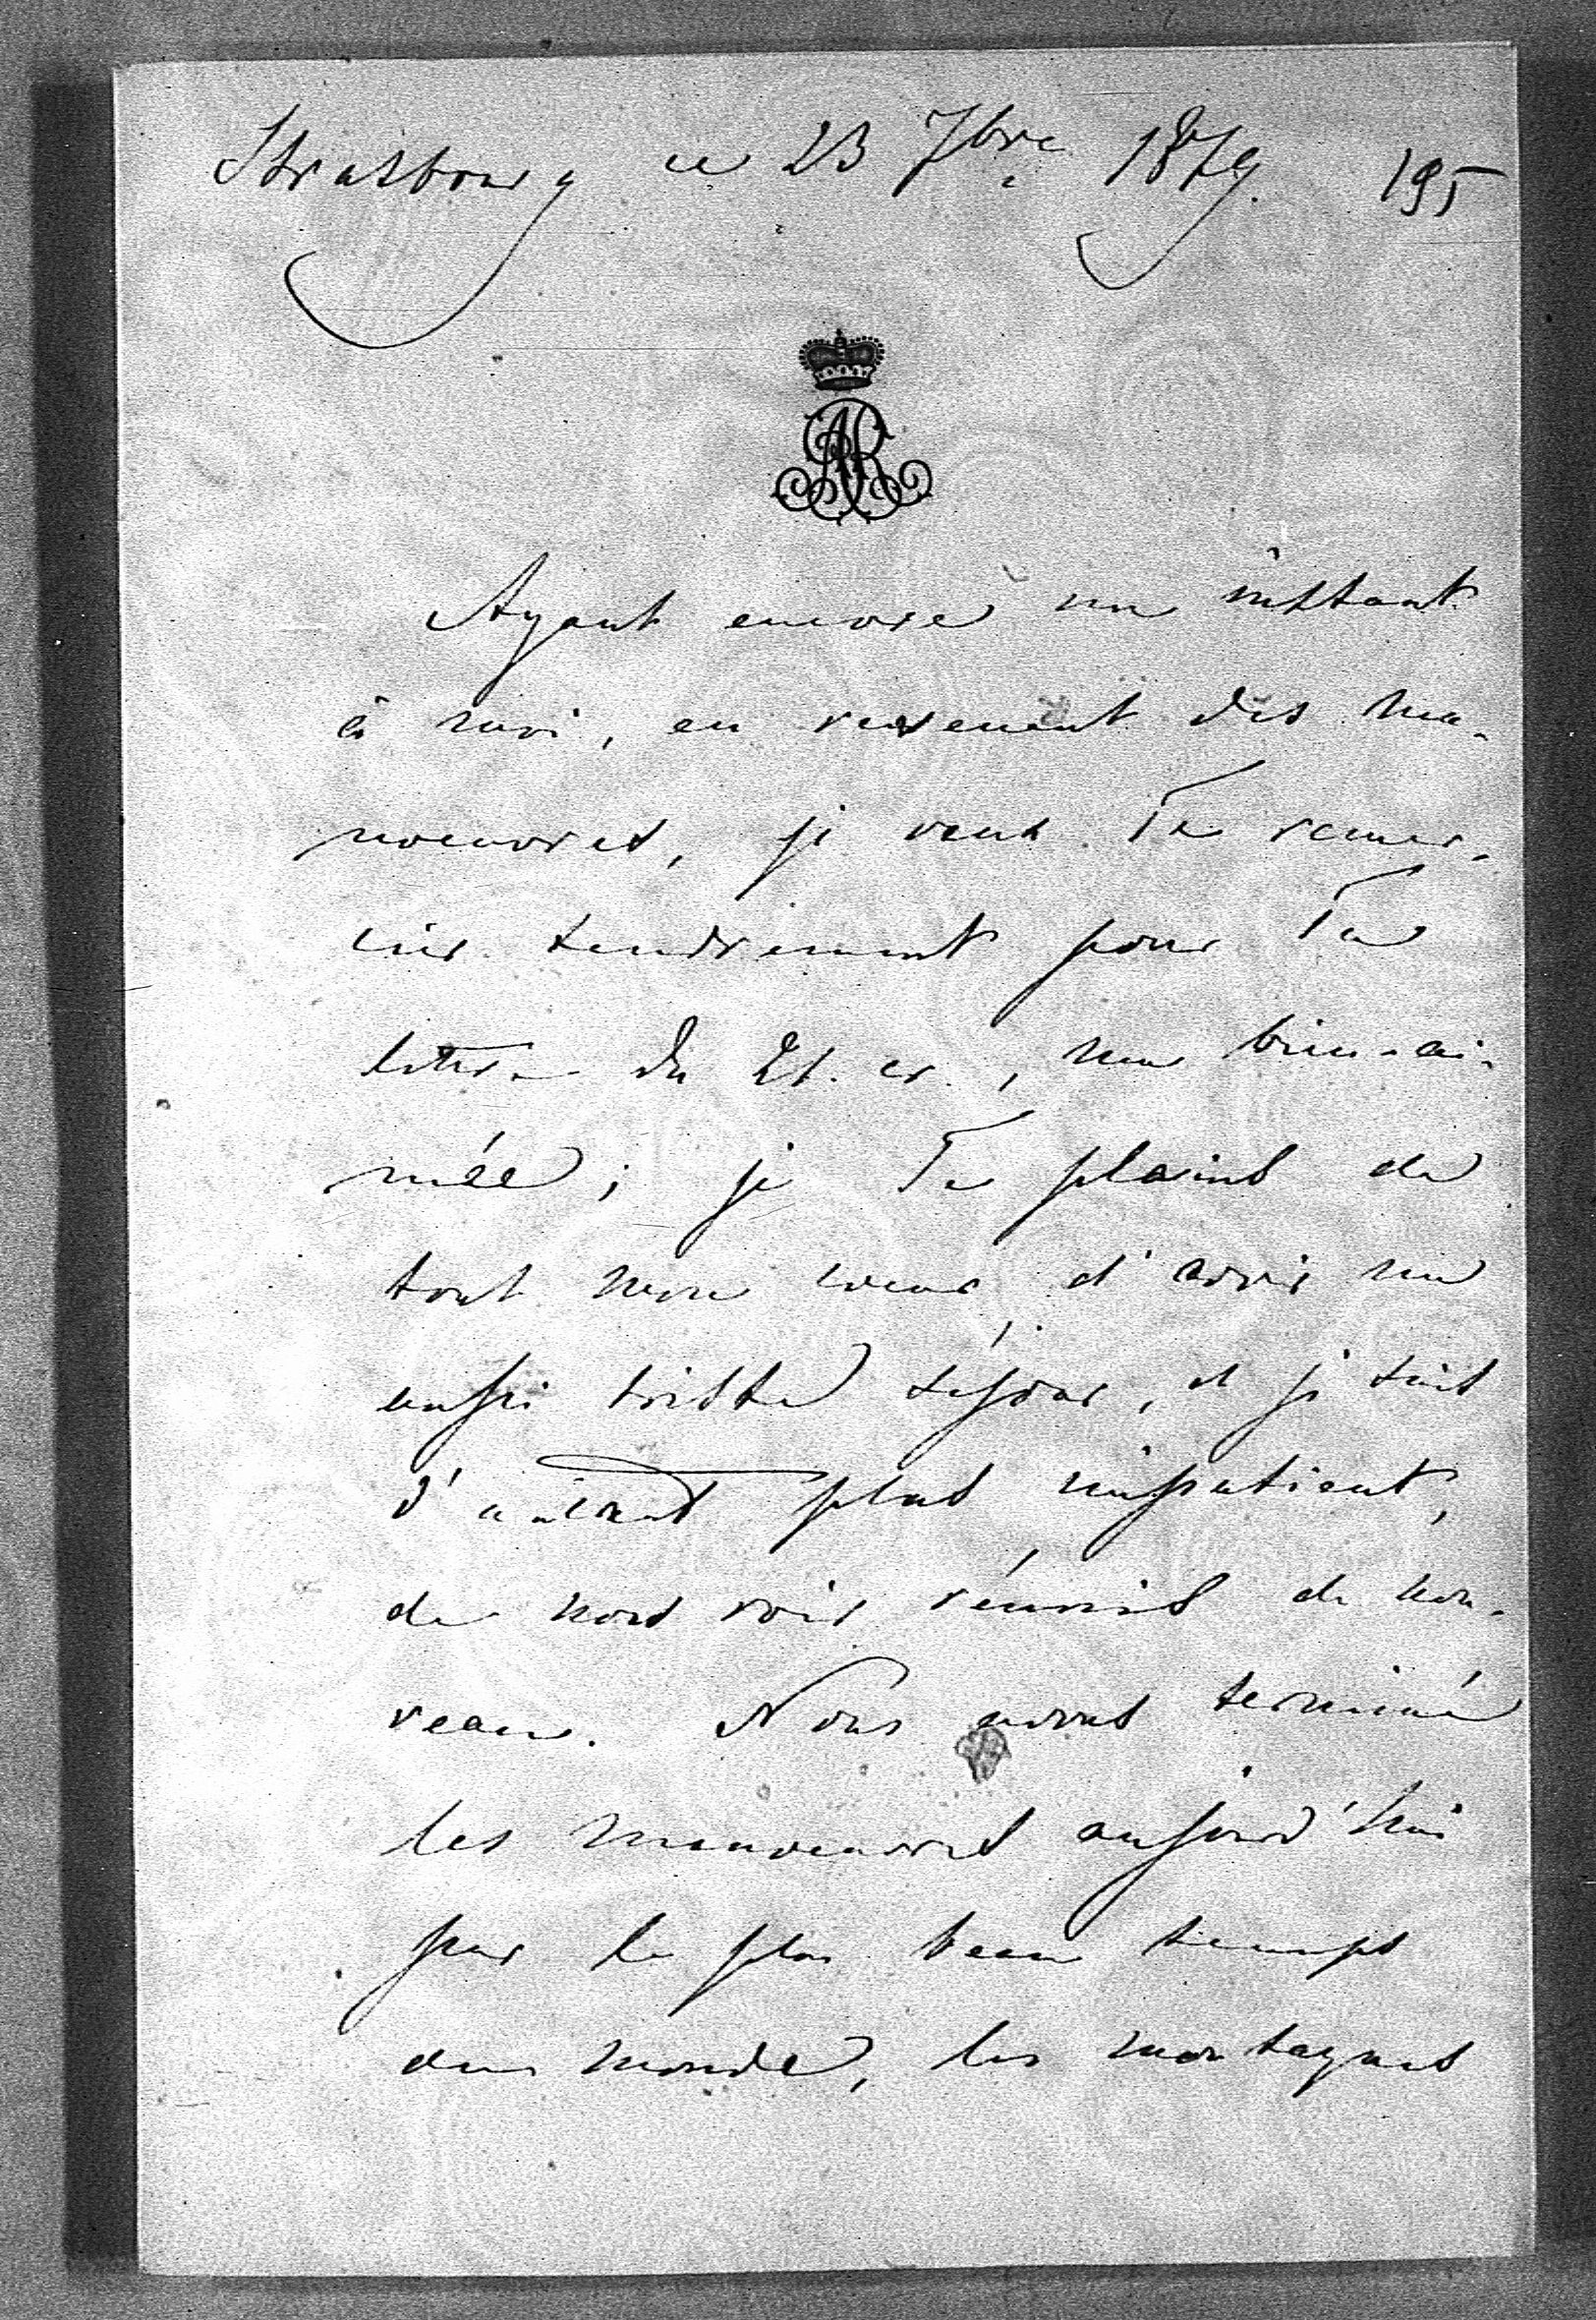 Strasbourg ce 23 7bre 1879. 195
AR
Ayant encore un instant
à moi, en revenant des ma-
noeuvres, je veux Te remer-
cier tendrement pour Ta
lettre du 21. cr., ma bien-ai-
mée; je Te plains de
tout mon coeur d'avoir un
aussi triste séjour, et je suis
d'autant plus impatient,
de nous voir réunis de nou-
veau. Nous avons terminé
les manoeuvres aujourd'hui
par le plus beau temps
du monde, les montagnes